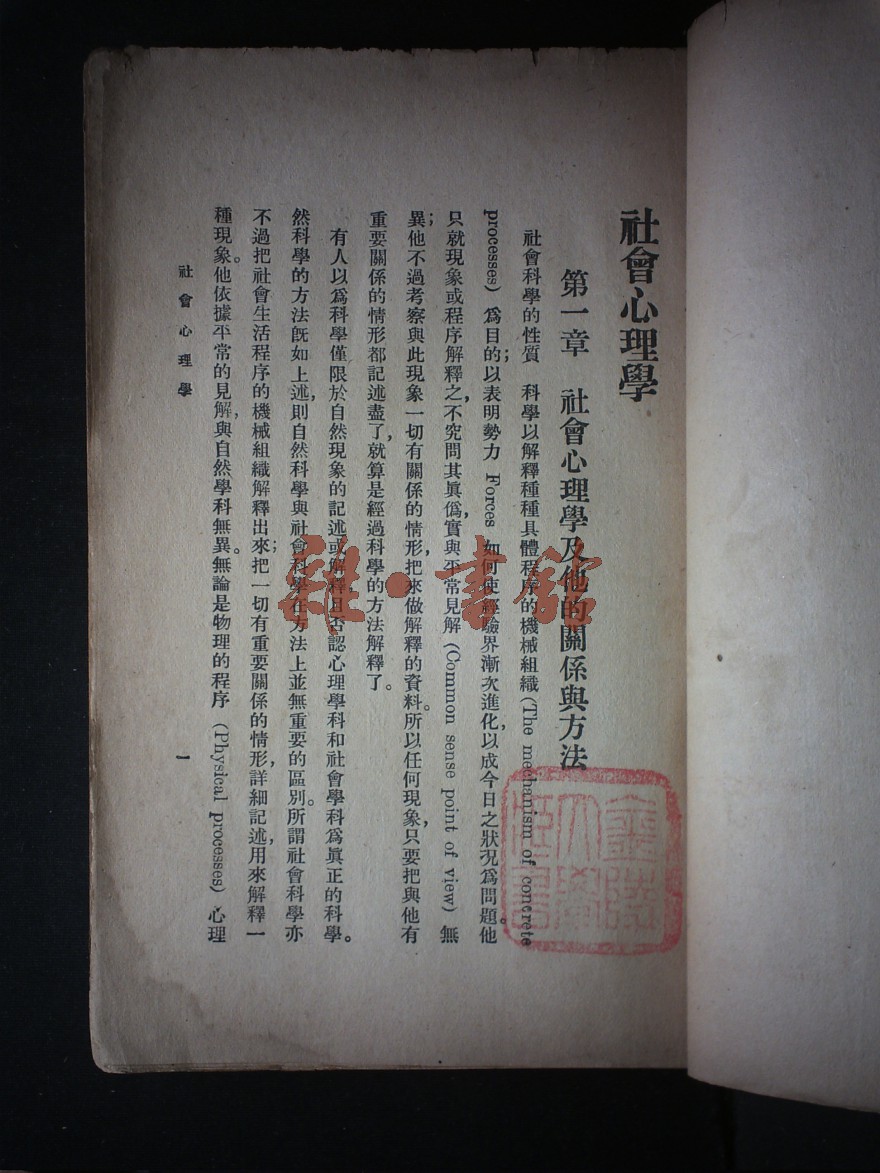 社會心理學
第一章　社會心理學及他的關係與方法
社會科學的性質　科學以解釋種種具體程序的機械組織(The mechanism of concrete
processes)爲目的；以表明勢力 Forces 如何使經驗界漸次進化，以成今日之狀況爲問題。他
只就現象或程序解釋之，不究問其眞僞，實與平常見解(Common sense point of view)無
異；他不過考察與此現象一切有關係的情形，把來做解釋的資料。所以任何現象，只要把與他有
重要關係的情形都記述盡了，就算是經過科學的方法解釋了。
有人以爲科學僅限於自然現象的記述或解釋，且否認心理學科和社會學科爲眞正的科學。
然科學的方法旣如上述，則自然科學與社會科學在方法上並無重要的區別。所謂社會科學亦
不過把社會生活程序的機械組織解釋出來；把一切有重要關係的情形，詳細記述，用來解釋一
種現象。他依據平常的見解，與自然學科無異。無論是物理的程序(Physical processes)心理
社會心理學
一
雜·書館